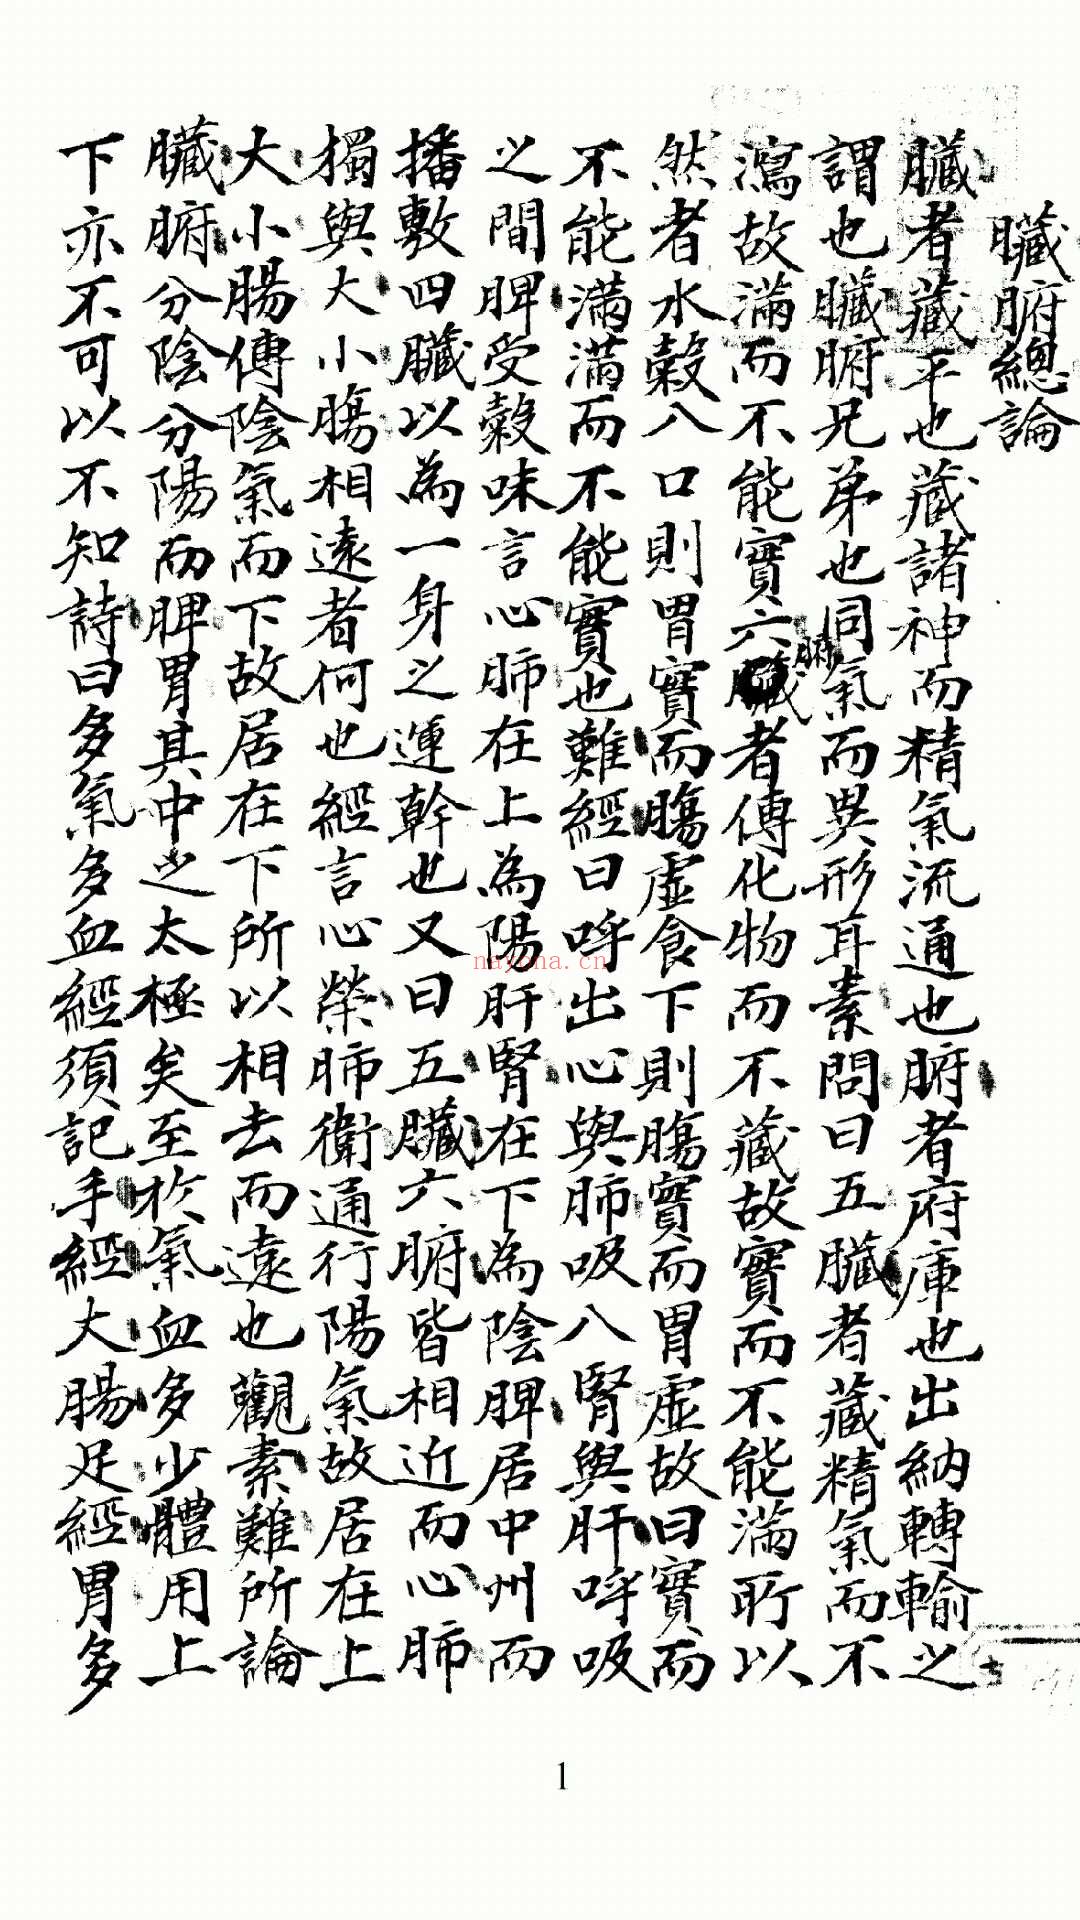 臓腑總論
臓者藏平也藏諸神而精氣流通也腑者府庫也出納轉輸之
謂也臓腑兄弟也同氣而異形耳素問曰五臓者藏精氣而不
瀉故滿而不能實六腑者傳化物而不藏故實而不能滿所以
然者水穀入口則胃實而腸虛食下則腸實而胃虛故曰實而
不能滿滿而不能實也難經曰呼出心與肺吸入腎與肝呼吸
之間脾受穀味言心肺在上為陽肝腎在下為陰脾居中州而
播敷四臓以為一身之運幹也又曰五臓六腑皆相近而心肺
獨與大小腸相遠者何也經言心榮肺衛通行陽氣故居在上
大小腸傳陰氣而下故居在下所以相去而遠也觀素難所論
臓腑分陰分陽而脾胃其中之太極矣至於氣血多少體用上
下亦不可以不知詩曰多氣多血經須記手經大腸足經胃多
nayona.cn
1